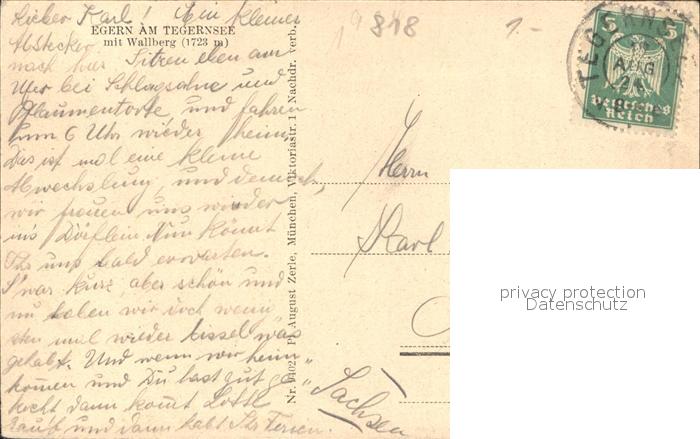 Lieber Karl! Ein kleiner
Abstecker
EGERN AM TEGERNSEE
mit Wallberg (1723 m)
nach hier. Sitzen eben am
Ufer bei Schlagsahne und
Pflaumentorte und fahren
zum 6 Uhr wieder heim.
Dies ist mal eine kleine
Abwechslung, und dennoch,
wir freuen uns wieder
ins Dörflein. Nun könnt
Ihr uns bald erwarten.
S'war kurz, aber schön und
nu haben wir doch wenig-
sten mal wieder bissel was
gehabt. Und wenn wir heim-
kommen und Du hast gut ge-
kocht dann kommt Lotte
rauf und dann habt Ihr Ferien.
Nr. 9402 Ph. August Zerle, München, Viktoriastr. 1 Nachdr. verb.
818
1.-
5 5
Deutsches
Reich
TEGERNSEE
AUG
Herrn
Karl
Sachsen
privacy protection
Datenschutz